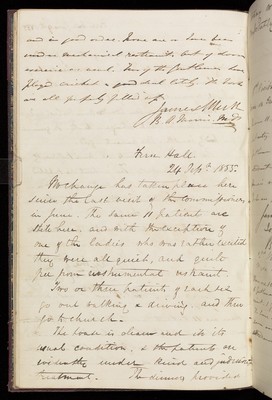 and in good order. None are or have been
under mechanical restraint, out of doors
exercise as usual. Two of the gentlemen have
played cricket a good deal lately. The Books
are all properly filled up.
James
24 Septr. 1855.
No change has taken place here
since the last visit of the Commissioners
in June. The same 11 patients are
still here, and with the exception of
one of the ladies who was rather excited
they were all quiet, and quite
free from instrumental restraint.
Two or three patients of each sex
go out walking & driving, and three
go to church.
The house is clean and in its
usual condition, & the patients are
evidently under kind and judicious
treatment. The dinner provided